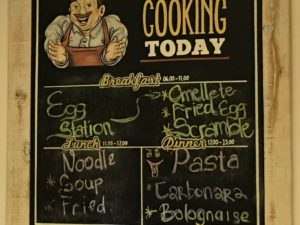 COOKING
TODAY
Breakfast 06.00-11.00
Egg
Station
*Omellete
*Fried Egg
*Scramble
Lunch 11.00-17.00
Noodle
*Soup
*Fried
Dinner
Pasta
*Carbonara
*Bolognaise